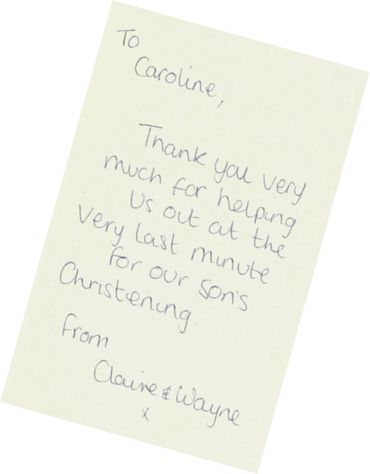 To
Caroline,
Thank you very
much for helping
us out at the
very last minute
for our son's
Christening.
from
Claire & Wayne
x